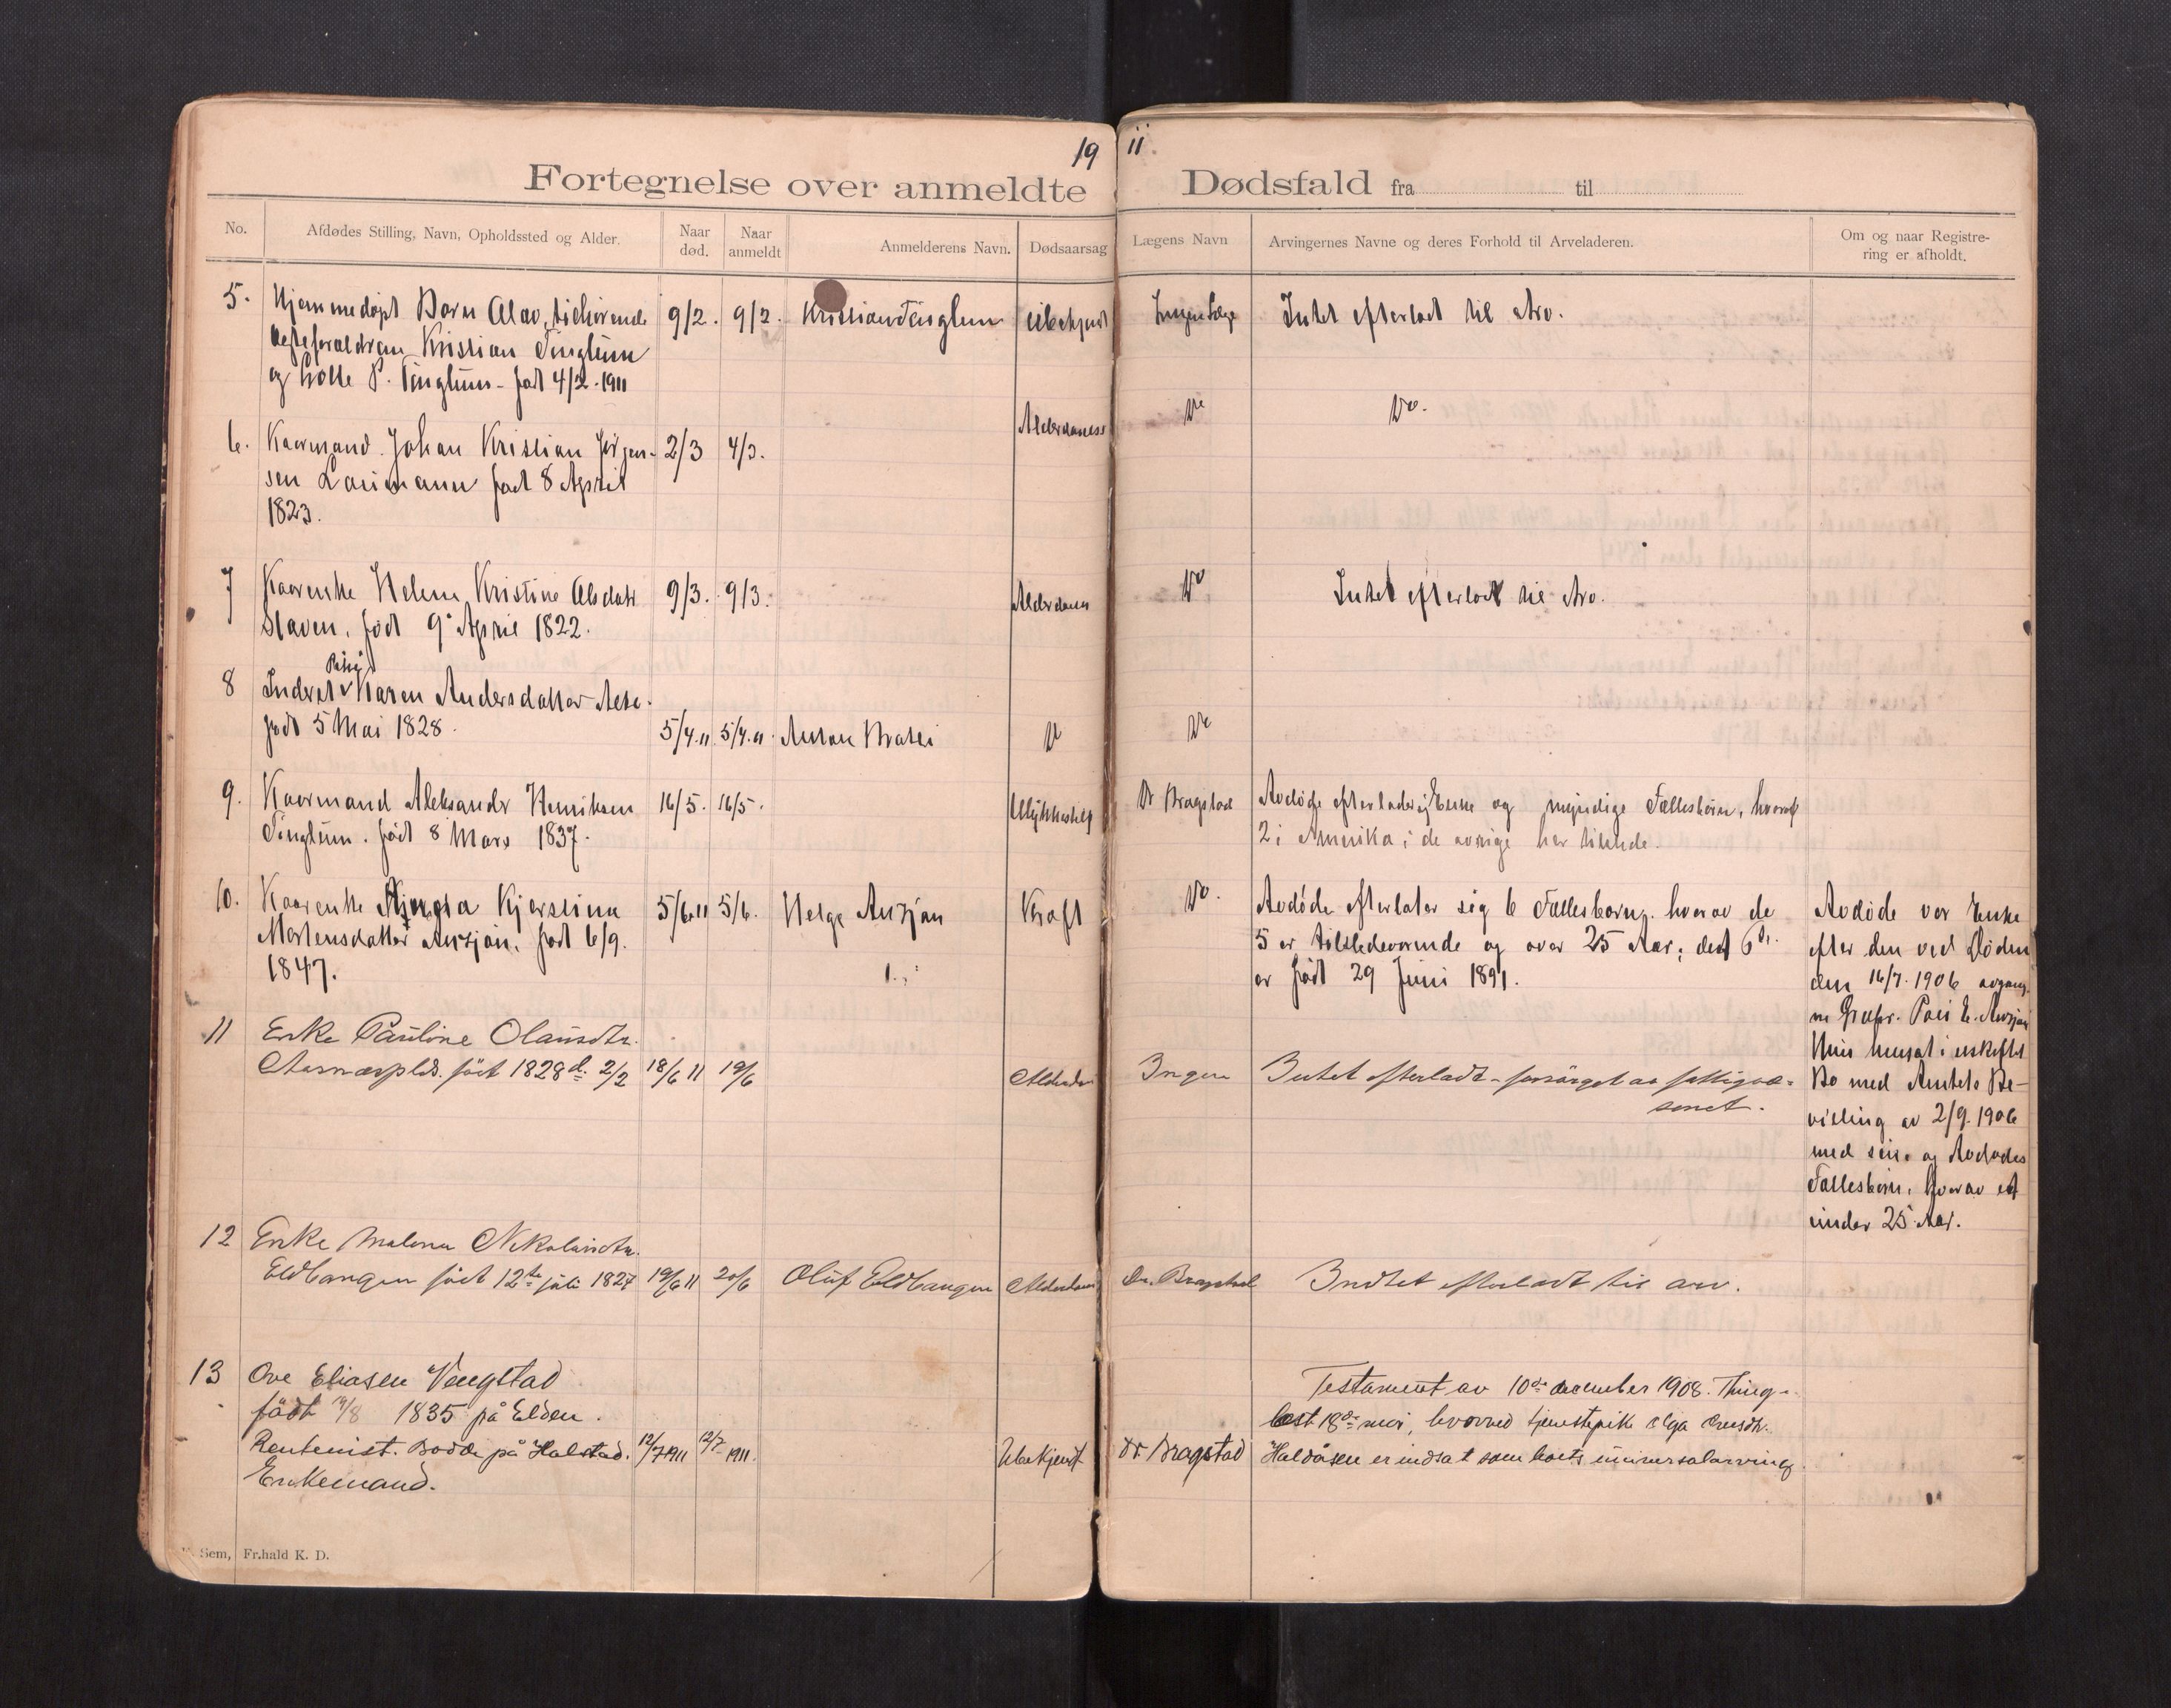 19 11.
Fortegnelse over anmeldte Dødsfald fra til
No. Afdødes Stilling, Navn, Opholdssted og Alder. Naar død. Naar anmeldt Anmelderens Navn. Dødsaarsag Lægens Navn Arvingernes Navne og deres Forhold til Arveladeren. Om og naar Registrering er afholdt.
5. Hjemmedøpt Barn Olav, tilhørende 9/2. 9/2. Kristian Tinglum ubekjendt Ingen Læge Intet efterladt til Arv.
Kristian Tinglum
og P. Tinglum - født 4/2-1911
6. Kaarmand Johan Kristian Jørgen- 2/3 4/3. Alderdomss Do Do.
sen født 8 April
1823.
7 Kaarenke Helene Kristine Olsdatr 9/3. 9/3. Alderdom Do Intet efterladt til Arv.
Slaven. født 9 April 1822.
8 Inderst Karen Andersdatter
født 5 Mai 1828. 5/4.11 5/4.11. Do Do
9. Kaarmand Aleksander Henriksen 16/5. 16/5. Ulykkestilf Dr Bragstad Avdøde efterlader sig Enke og myndige Fællesbørn, hvoraf
Tinglum. født 8 Mars 1837. 2 i Amerika; de øvrige her tilstede.
10. Kaarenke Kjerstina 5/6 11 5/6. Helge Auzjøn Kræft Do. Avdøde efterlater sig 6 Fællesbørn, hvorav de
Mortensdatter Auzjøn, født 6/9. 5 er tilstedeværende og over 25 Aar; det 6te
1847. er født 29 Juni 1891.
Avdøde var Enke
efter den ved Døden
den 16/7. 1906 avgang-
ne
Hun hensat i uskiftet
Bo med Amtets Be-
villing av 2/9. 1906
med sine og Avdødes
Fællesbørn, hvorav et
under 25 Aar.
11 Enke Pauline Olausdtr.
født 1828 d. 2/2 18/6 11 19/6 Alderdom Ingen Intet efterladt - forsørget av fattigvæ-
senet.
12 Enke Malena Nikolaisdtr.
Eldbangen født 12te juli 1827 19/6 11 20/6 Oluf Eldbangen Alderdom Dr. Bragstad Indtet efterladt til arv.
13 Ove Eliasen Vengstad Testament av 10de december 1908. Thing-
født 1835 på Elden. læst 18de hvorved tjenestepike Olga
Rentenist. Bodde på Halstad. 12/7 1911 12/7 1911. Ubekjent Dr Bragstad Haldåsen er indsat som boets universalarving.
Enkemand.
Sem, Fr.hald K. D.